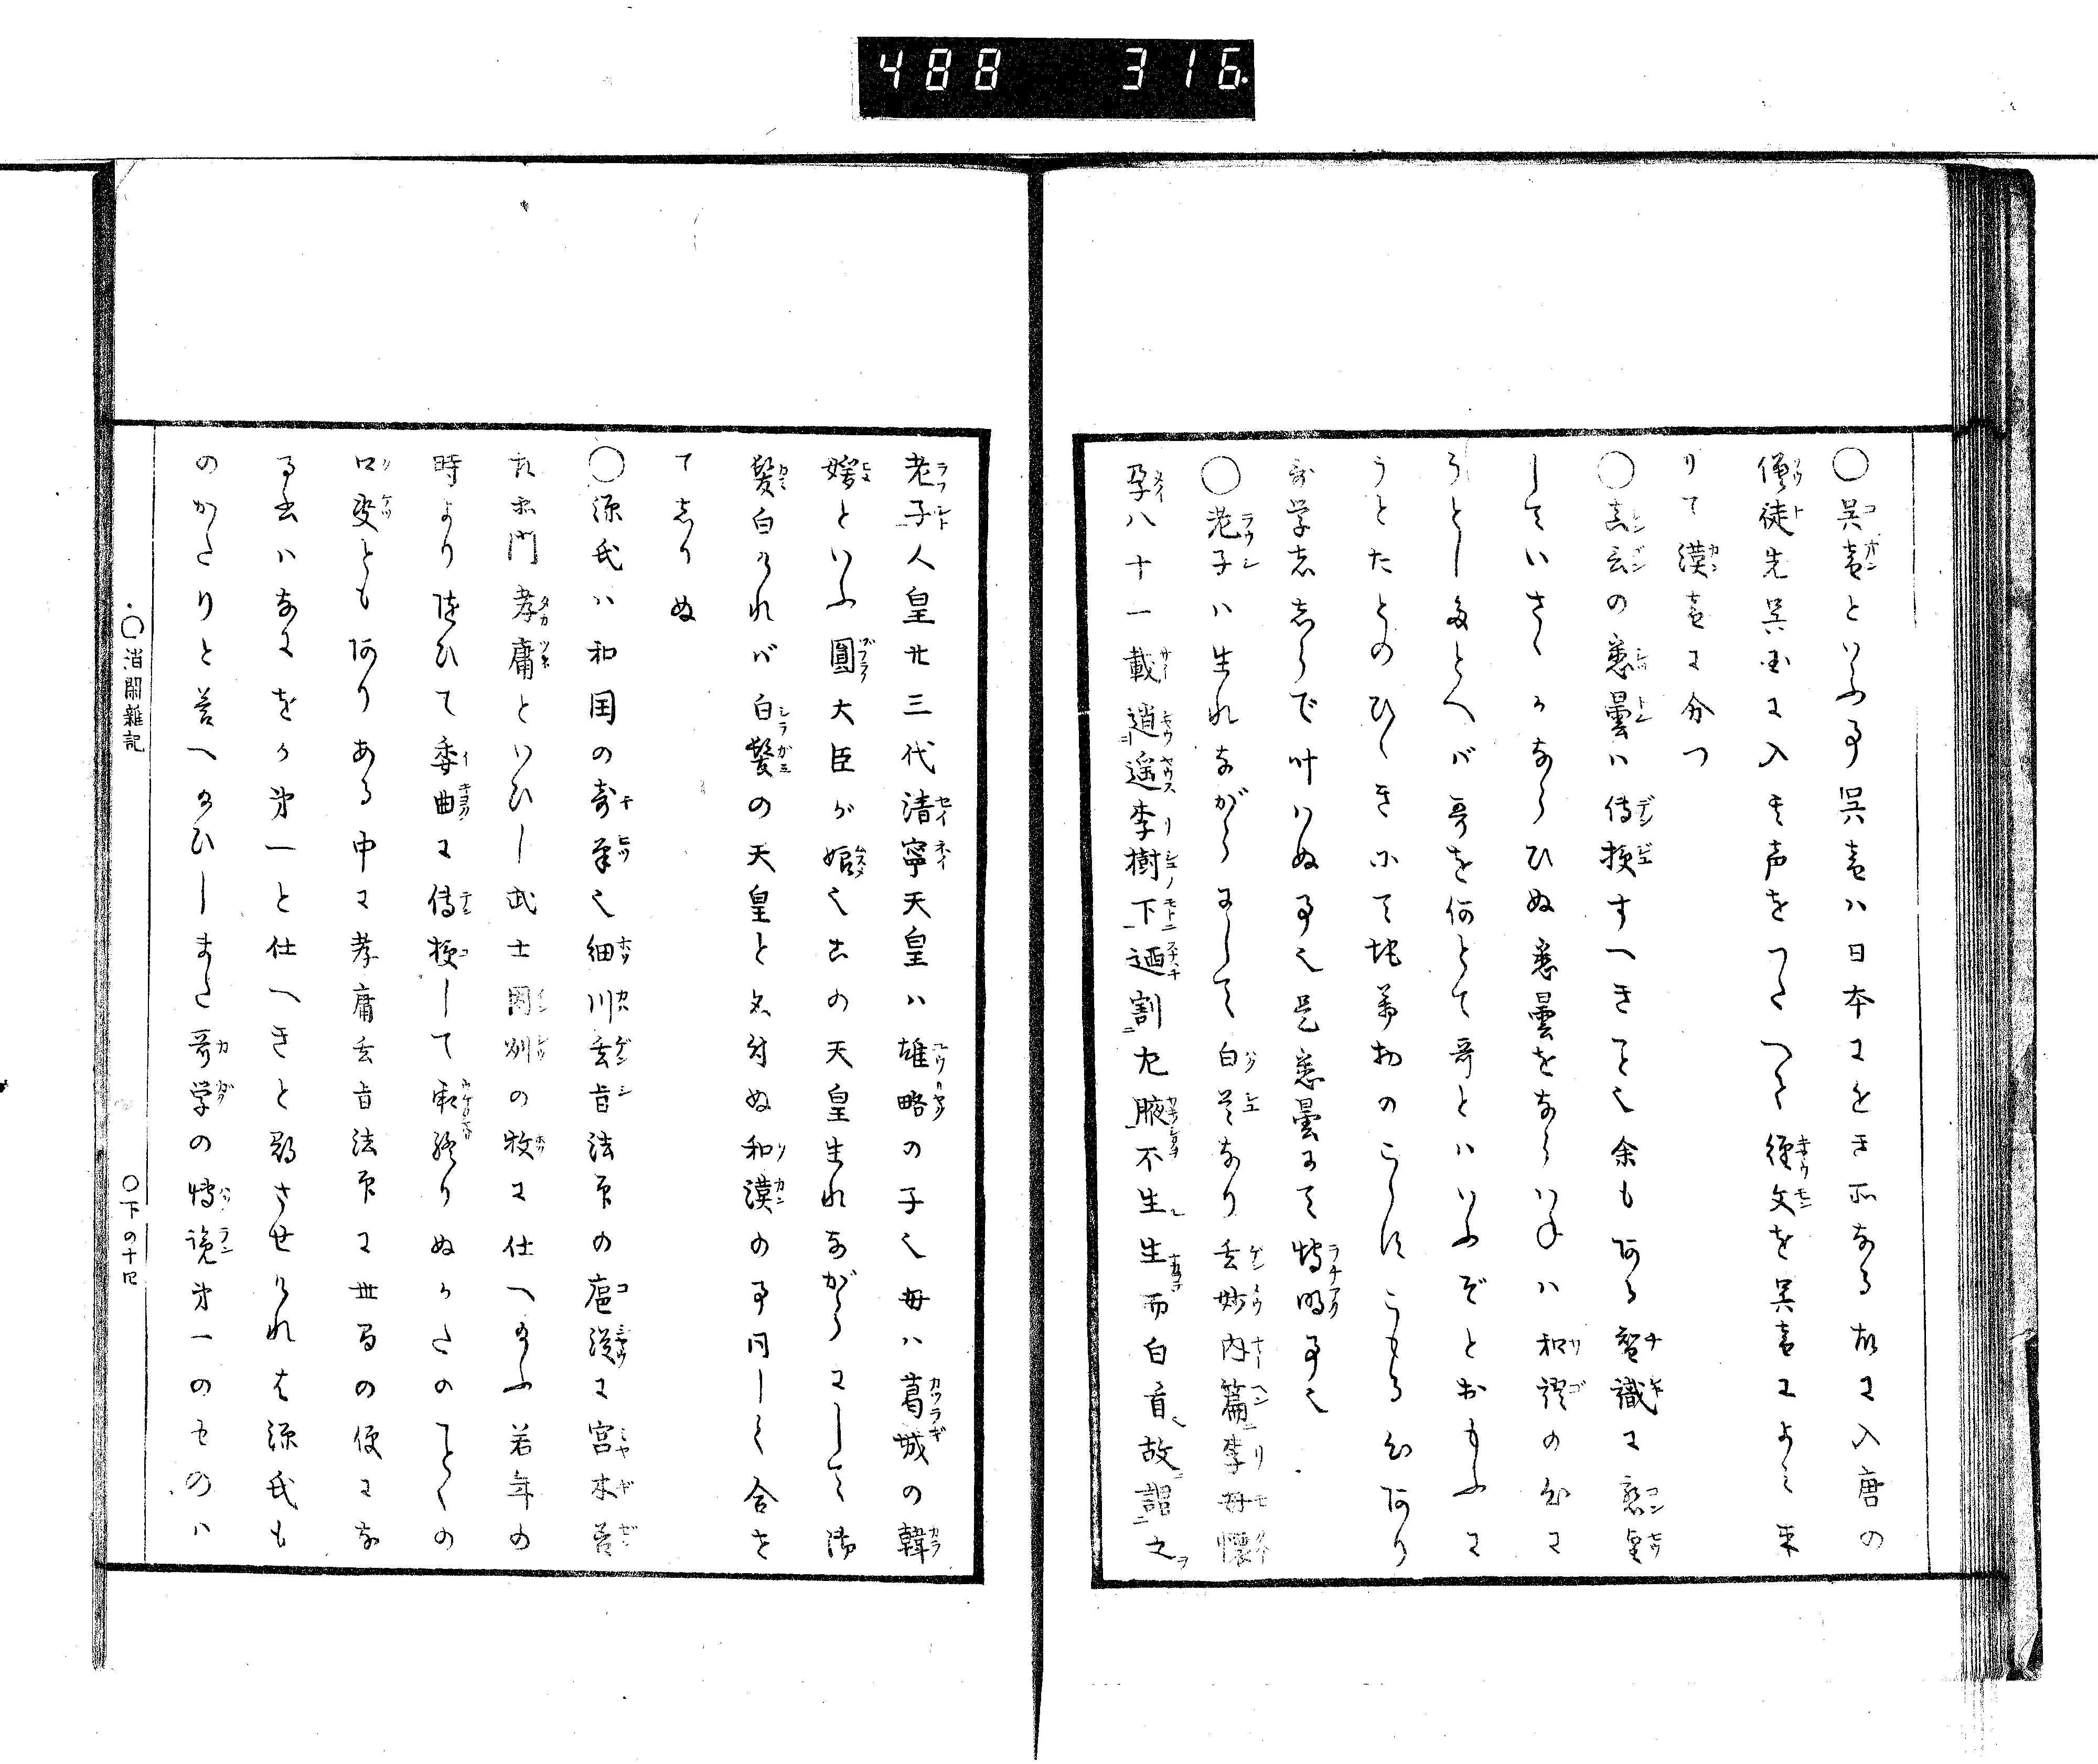 488 316
○呉音といふ事呉音ハ日本にをき所なる故に入唐の
僧徒先呉国に入其声をつたへて経文を呉音によミ来
りて漢音に分つ
○真言の悉曇ハ伝授すへきこと也余もある智識に懇望
していさゝかならひぬ悉曇をならハねハ和語の
うとしたとへバ哥を何とて哥とハいふぞとおもふに
うとたとのひゝき
哥学志しらで叶ハぬ事也是悉曇にて埒明事也
○老子ハ生れながらにして白髪なり玄妙内篇李母懐
孕八十一載逍遥李樹下迺割左腋不生生而白首故謂之
老子人皇廿三代清寧天皇ハ雄略の子也母ハ葛城の韓
媛といふ圓大臣が娘也此の天皇生れながらにして御
髪白けれバ白髪の天皇と名付ぬ和漢の事同しく合せ
てしりぬ
○源氏ハ和国の奇筆也細川玄旨法印の扈従に宮木善
左衛門孝庸といひし武士因州の牧に仕へ給ふ若年の
時より随ひて委曲に伝授して承終りぬかたのことくの
口受ともありある中に孝庸玄旨法印に世間の便にな
る書ハなにをか第一と仕へきと尋させけれは源氏も
のかたりと答へ給ひしまた哥学の博覧第一のものハ
○消閑雑記
○下の十四